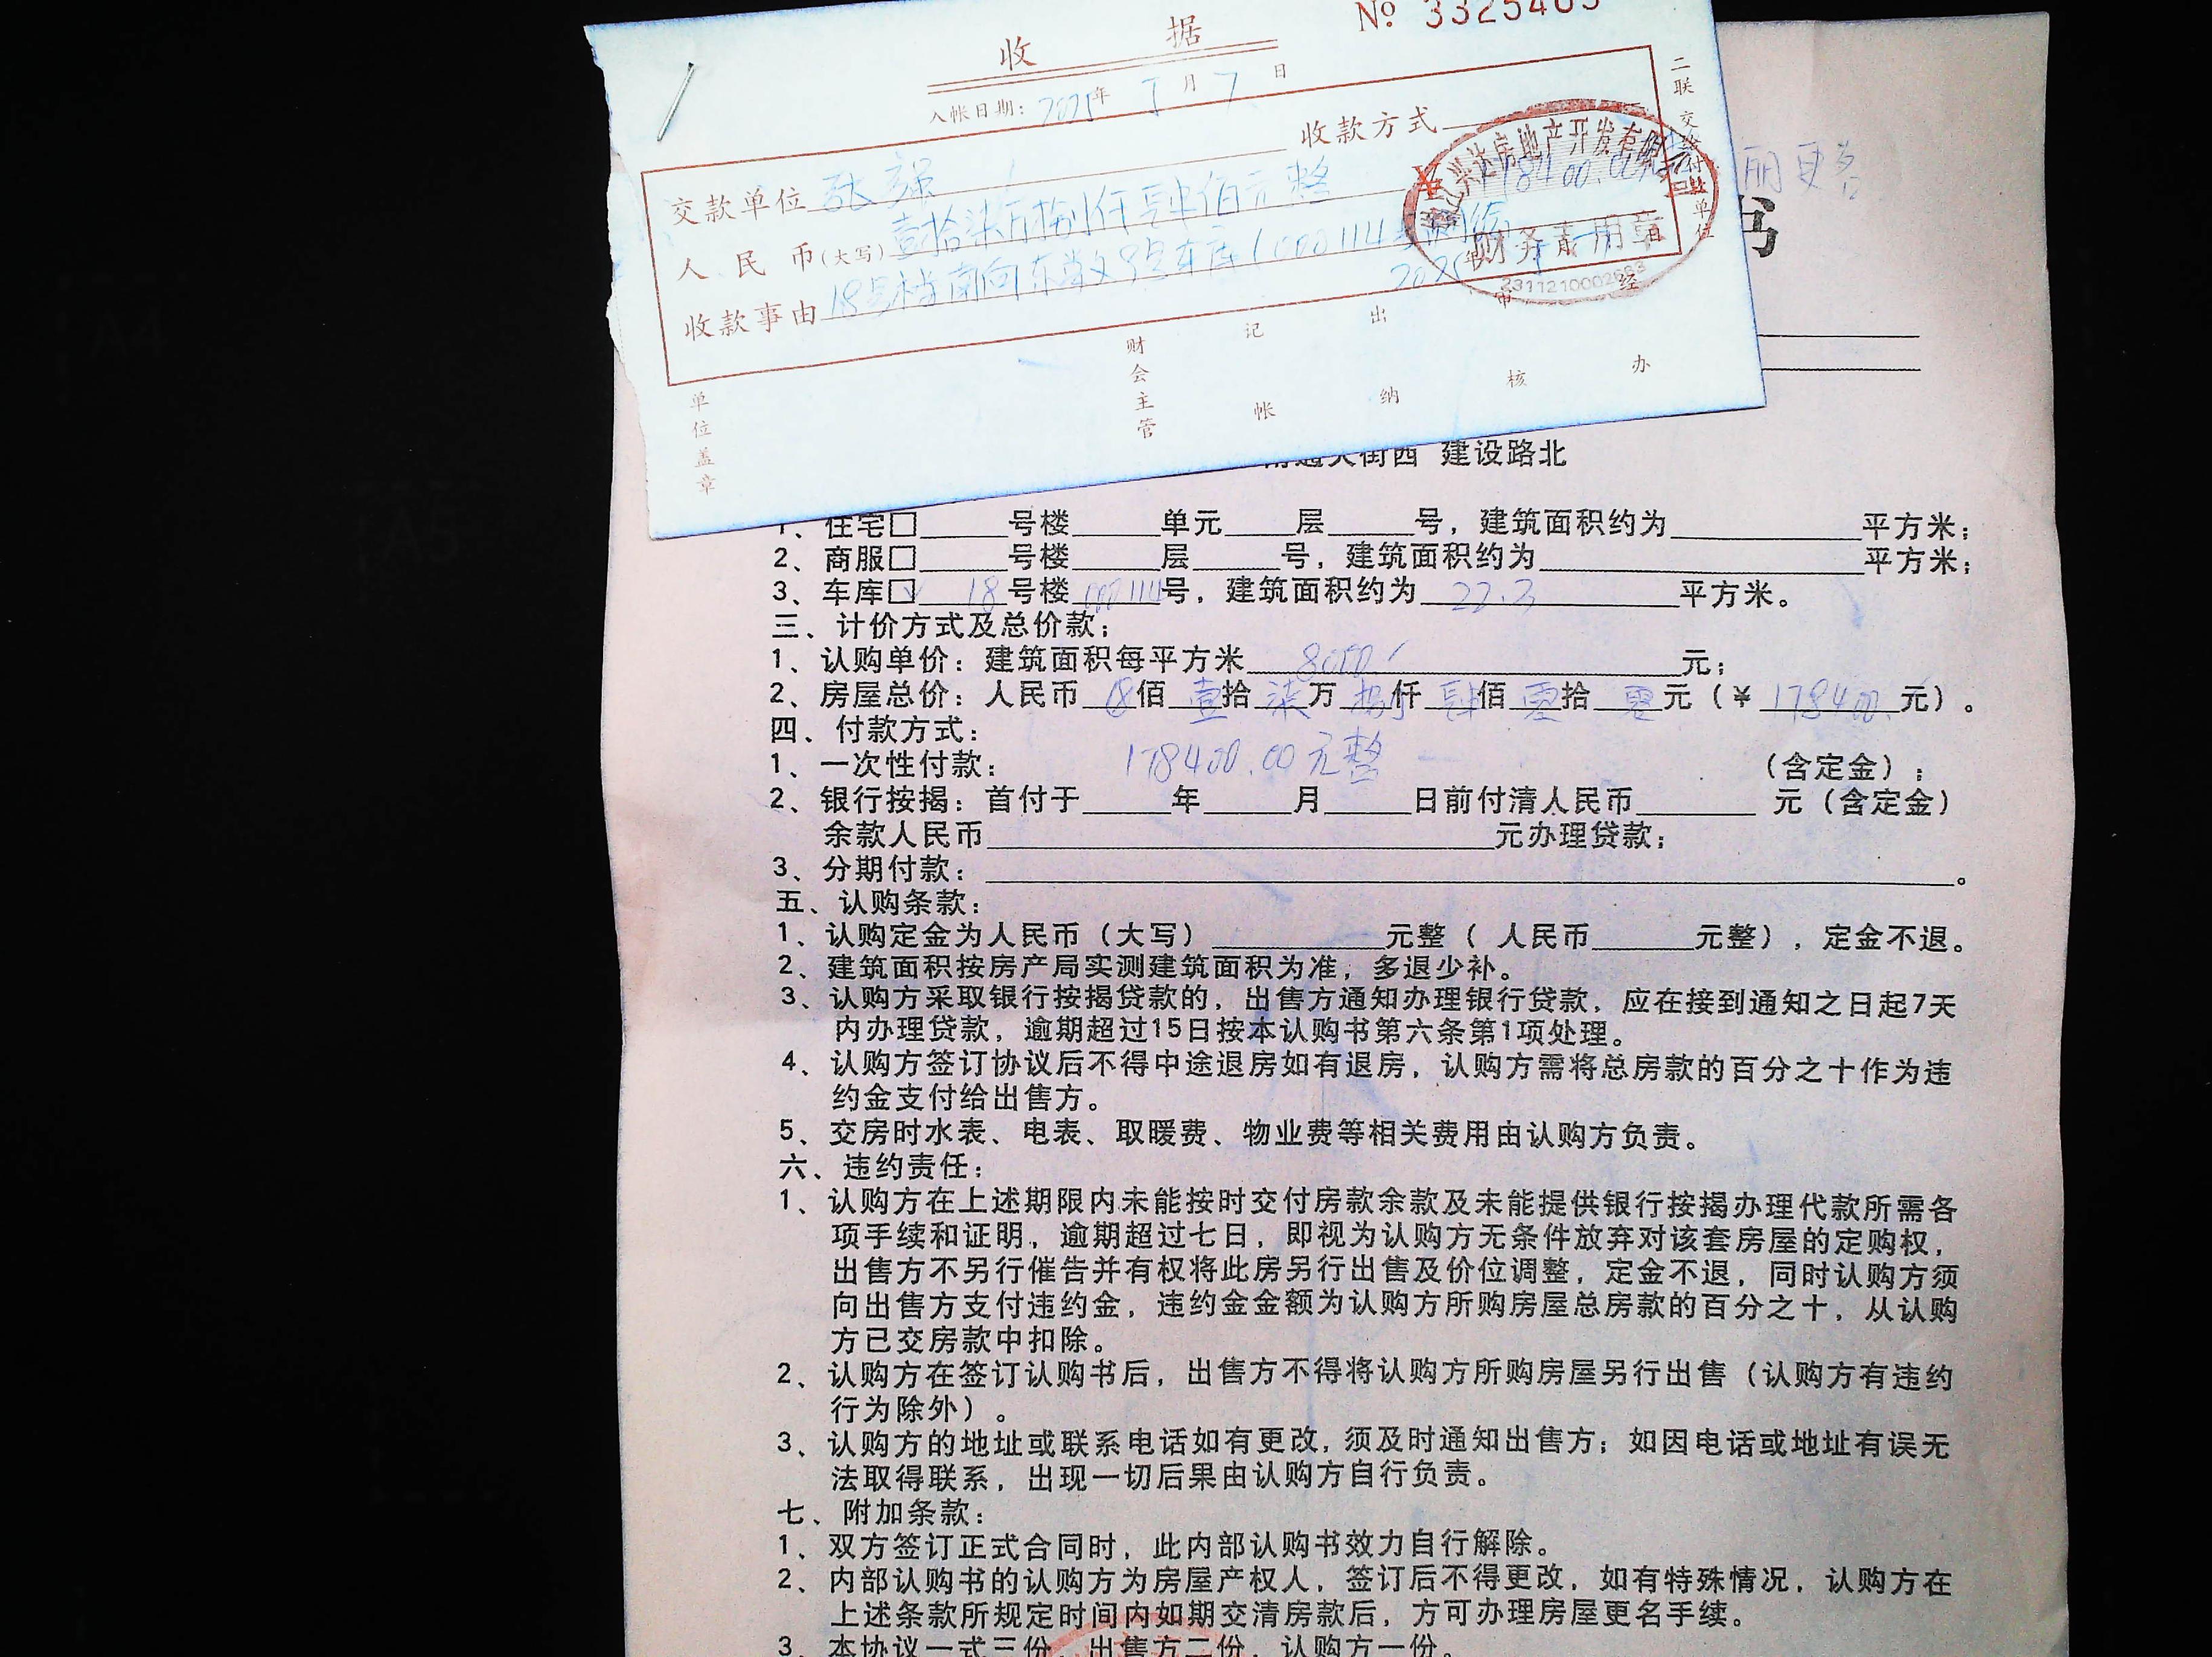 收 据
№ 3325463
入帐日期: 2025年 7月 7日
二联 交给付款单位
收款方式
交款单位 张强
人民币(大写) 壹拾柒万捌仟肆佰元整 ¥178400.00
收款事由 18号楼南向东数9号车库(000114
房地产开发有限公司
财务专用章
年 月 日
单位盖章 财会主管 记帐 出纳 审核 经办
大街西 建设路北
1、住宅□ 号楼 单元 层 号，建筑面积约为 平方米；
2、商服□ 号楼 层 号，建筑面积约为 平方米；
3、车库☑ 18号楼 000114号，建筑面积约为 22.3 平方米。
三、计价方式及总价款：
1、认购单价：建筑面积每平方米 8000 元；
2、房屋总价：人民币 佰 壹拾 柒万 捌仟 肆佰 零拾 零元（¥ 178400. 元）。
四、付款方式：
1、一次性付款： 178400.00元整 （含定金）；
2、银行按揭：首付于 年 月 日前付清人民币 元（含定金）
余款人民币 元办理贷款；
3、分期付款： 。
五、认购条款：
1、认购定金为人民币（大写） 元整（ 人民币 元整），定金不退。
2、建筑面积按房产局实测建筑面积为准，多退少补。
3、认购方采取银行按揭贷款的，出售方通知办理银行贷款，应在接到通知之日起7天
内办理贷款，逾期超过15日按本认购书第六条第1项处理。
4、认购方签订协议后不得中途退房如有退房，认购方需将总房款的百分之十作为违
约金支付给出售方。
5、交房时水表、电表、取暖费、物业费等相关费用由认购方负责。
六、违约责任：
1、认购方在上述期限内未能按时交付房款余款及未能提供银行按揭办理代款所需各
项手续和证明，逾期超过七日，即视为认购方无条件放弃对该套房屋的定购权，
出售方不另行催告并有权将此房另行出售及价位调整，定金不退，同时认购方须
向出售方支付违约金，违约金金额为认购方所购房屋总房款的百分之十，从认购
方已交房款中扣除。
2、认购方在签订认购书后，出售方不得将认购方所购房屋另行出售（认购方有违约
行为除外）。
3、认购方的地址或联系电话如有更改，须及时通知出售方；如因电话或地址有误无
法取得联系，出现一切后果由认购方自行负责。
七、附加条款：
1、双方签订正式合同时，此内部认购书效力自行解除。
2、内部认购书的认购方为房屋产权人，签订后不得更改，如有特殊情况，认购方在
上述条款所规定时间内如期交清房款后，方可办理房屋更名手续。
3、本协议一式三份，出售方二份，认购方一份。